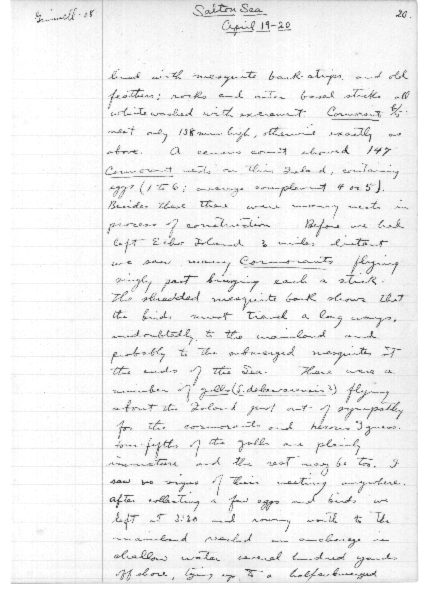 Grinnell-'08
Salton Sea
20.
April 19-20
lined with mesquite bark-strips, and old
feathers; rocks and outer basal sticks all
whitewashed with excrement. Cormorant 6/5-
nest only 138 mm high, otherwise exactly as
above. A census count showed 147
Cormorant nests on this Island, containing
eggs (1 to 6; average complement 4 or 5).
Besides these there were many nests in
process of construction. Before we had
left Echo Island 3 miles distant
we saw many Cormorants flying
singly past bringing each a stick.
The shredded mesquite bark shows that
the birds must travel a long ways,
undoubtedly to the mainland and
probably to the submerged mesquites at
the ends of the Sea. There were a
number of gulls (L. delawarensis?) flying
about the Island just out of sympathy
for the cormorants and herons I guess.
Four-fifths of the gulls are plainly
immature and the rest may be too. I
saw no signs of their nesting anywhere.
After collecting a few eggs and birds we
left at 3:30 and rowing north to the
mainland reached an anchorage in
shallow water several hundred yards
off shore, tying up to a half-submerged